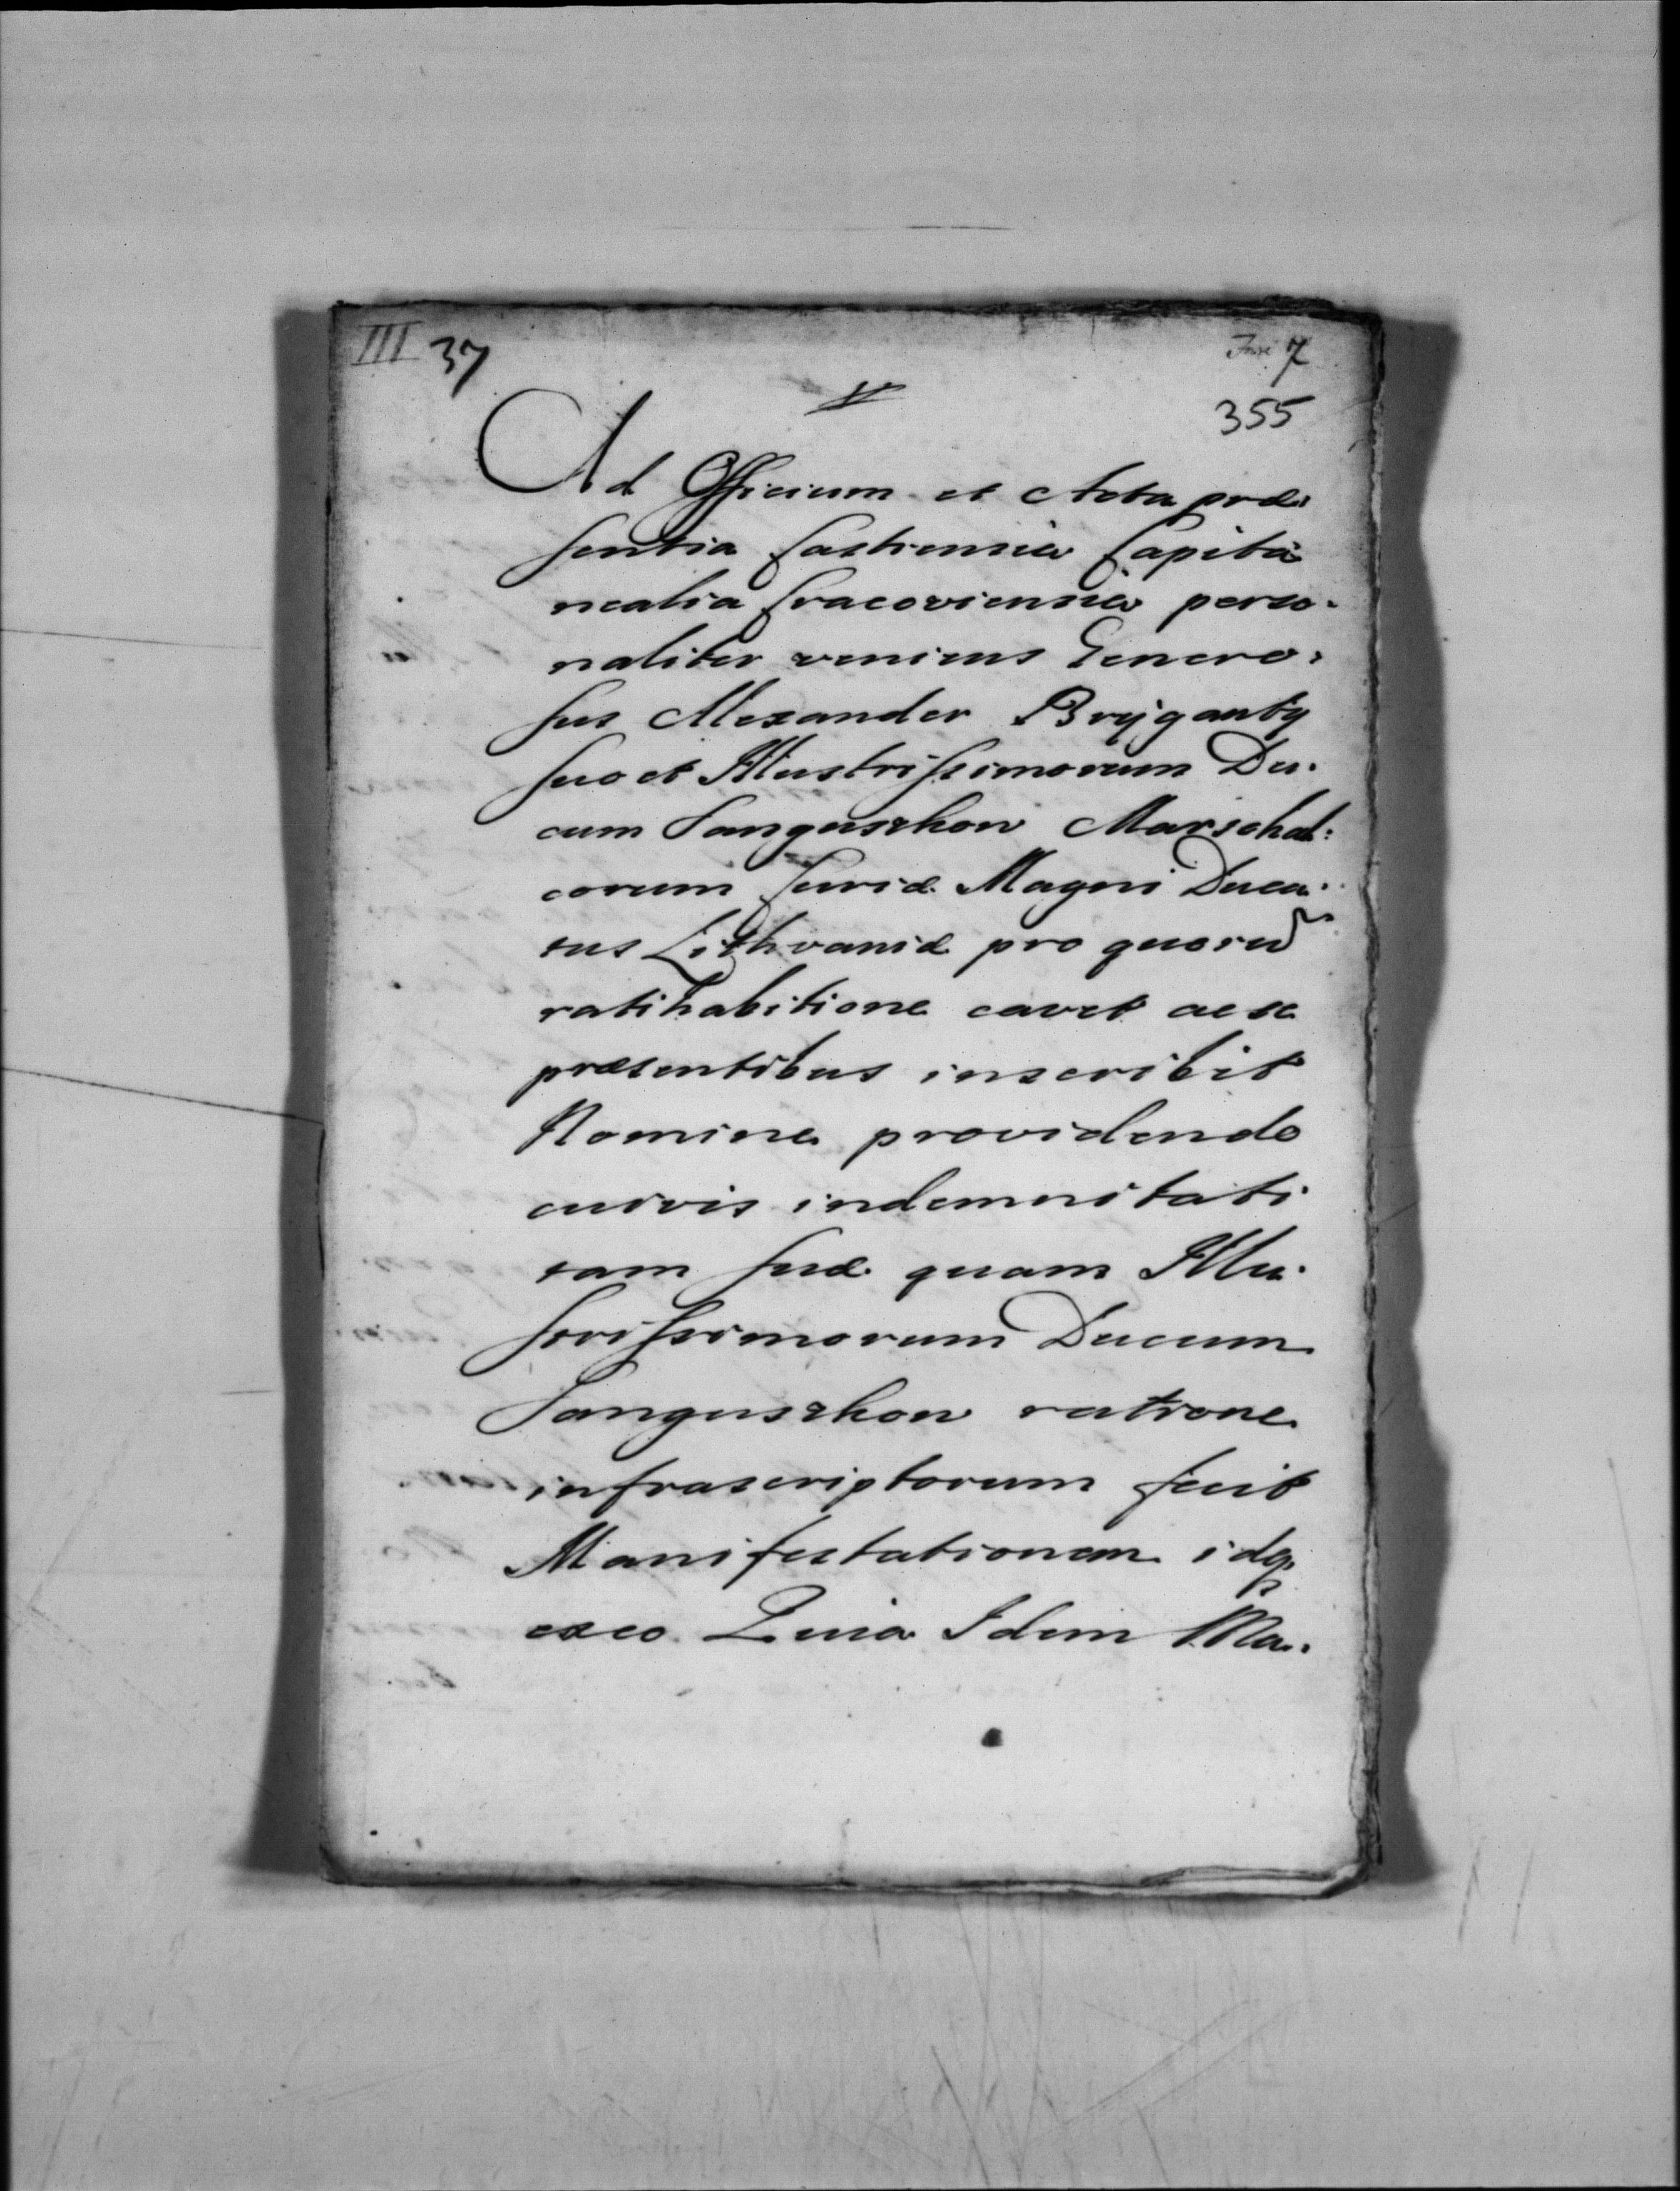 III 37
7
355
Ad Officium et Acta præ:
sentia Castrensia Capita
nealia Cracoviensia perso-
naliter veniens Genero:
sus Alexander Bryganty
suo et Illustrissimorum Du-
cum Sanguszkow Marschal:
corum Curiæ Magni Duca-
tus Lithvaniæ pro quorū
ratihabitione cavet ac se
præsentibus inscribit
Nomine providendo
cuivis indemnitati
tam suæ quam Illu-
strissimorum Ducum
Sanguszkow ratione
infrascriptorum fecit
Manifestationem idq
exeo Quia Idem Ma-